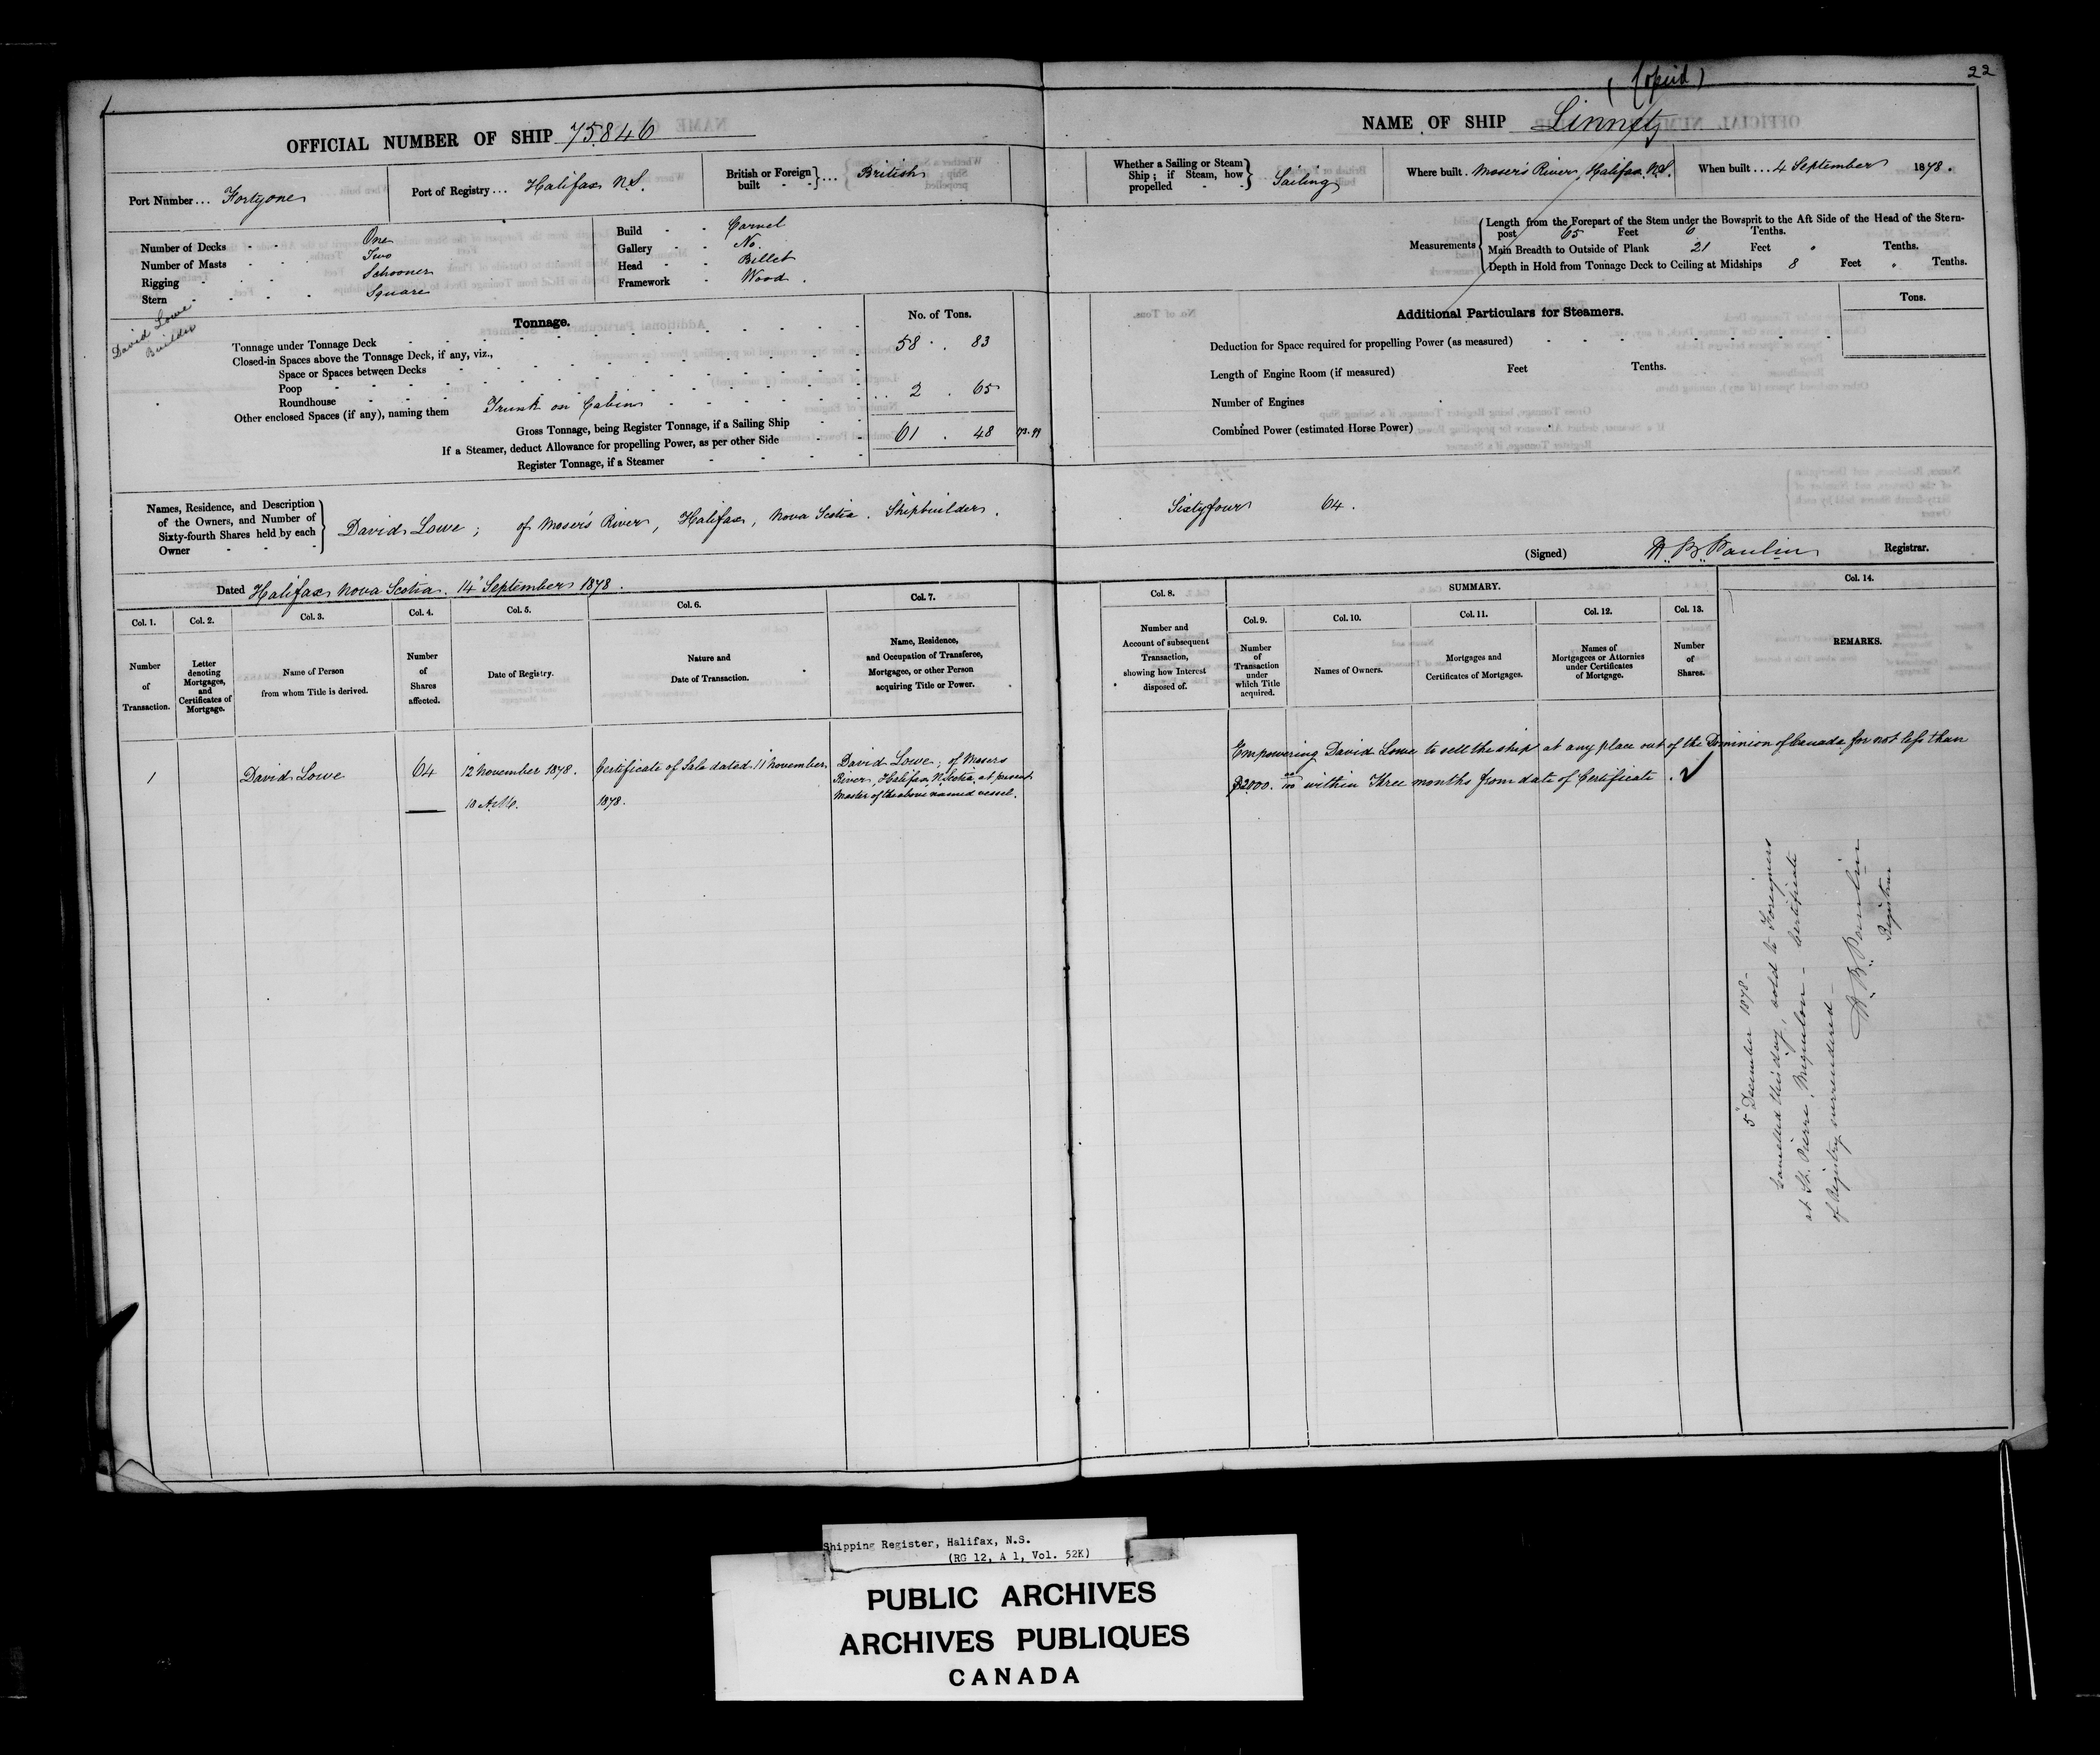 (Copied)
22
OFFICIAL NUMBER OF SHIP 75.846
NAME OF SHIP Linnet
Port Number ... Fortyone
Port of Registry ... Halifax N.S.
British or Foreign built } ... British
Whether a Sailing or Steam Ship; if Steam, how propelled } Sailing
Where built . Moser's River, Halifax N.S.
When built ... 4 September 1878.
Number of Decks - - One
Number of Masts - - Two
Rigging - - Schooner
Stern - - - - Square
Build - - Carvel
Gallery - - No.
Head - - Billet
Framework - Wood.
Measurements { Length from the Forepart of the Stem under the Bowsprit to the Aft Side of the Head of the Stern-
post 65 Feet 6 Tenths.
Main Breadth to Outside of Plank 21 Feet " Tenths.
Depth in Hold from Tonnage Deck to Ceiling at Midships 8 Feet " Tenths.
David Lowe
Builder
Tonnage.
No. of Tons.
Tonnage under Tonnage Deck 58 . 83
Closed-in Spaces above the Tonnage Deck, if any, viz.,
Space or Spaces between Decks
Poop
Roundhouse 2 . 65
Other enclosed Spaces (if any), naming them Trunk on Cabin
Gross Tonnage, being Register Tonnage, if a Sailing Ship 61 . 48
If a Steamer, deduct Allowance for propelling Power, as per other Side
Register Tonnage, if a Steamer
Additional Particulars for Steamers.
Tons.
Deduction for Space required for propelling Power (as measured)
Length of Engine Room (if measured) Feet Tenths.
Number of Engines
Combined Power (estimated Horse Power)
Names, Residence, and Description
of the Owners, and Number of
Sixty-fourth Shares held by each
Owner
David Lowe; of Moser's River, Halifax, Nova Scotia. Shipbuilder.
Sixtyfour 64.
(Signed) H. B. Paulin Registrar.
Dated Halifax Nova Scotia. 14 September 1878.
Col. 1.
Number
of
Transaction.
Col. 2.
Letter
denoting
Mortgages,
and
Certificates of
Mortgage.
Col. 3.
Name of Person
from whom Title is derived.
Col. 4.
Number
of
Shares
affected.
Col. 5.
Date of Registry.
Col. 6.
Nature and
Date of Transaction.
Col. 7.
Name, Residence,
and Occupation of Transferee,
Mortgagee, or other Person
acquiring Title or Power.
Col. 8.
Number and
Account of subsequent
Transaction,
showing how Interest
disposed of.
SUMMARY.
Col. 9.
Number
of
Transaction
under
which Title
acquired.
Col. 10.
Names of Owners.
Col. 11.
Mortgages and
Certificates of Mortgages.
Col. 12.
Names of
Mortgagees or Attornies
under Certificates
of Mortgage.
Col. 13.
Number
of
Shares.
Col. 14.
REMARKS.
1
David Lowe
64
12 November 1878.
10 A.M.
Certificate of Sale dated 11 November,
1878.
David Lowe; of Mosers
River, Halifax, N. Scotia, at present
Master of the above named vessel.
Empowering David Lowe to sell the ship at any place out of the Dominion of Canada for not less than
$2000. 00/100 within Three months from date of Certificate.
5 December 1878-
Cancelled this day, sold to Foreigners
at St. Pierre, Miquelon - Certificate
of Registry surrendered -
H. B. Paulin
Registrar
Shipping Register, Halifax, N.S.
(RG 12, A 1, Vol. 52K)
PUBLIC ARCHIVES
ARCHIVES PUBLIQUES
CANADA